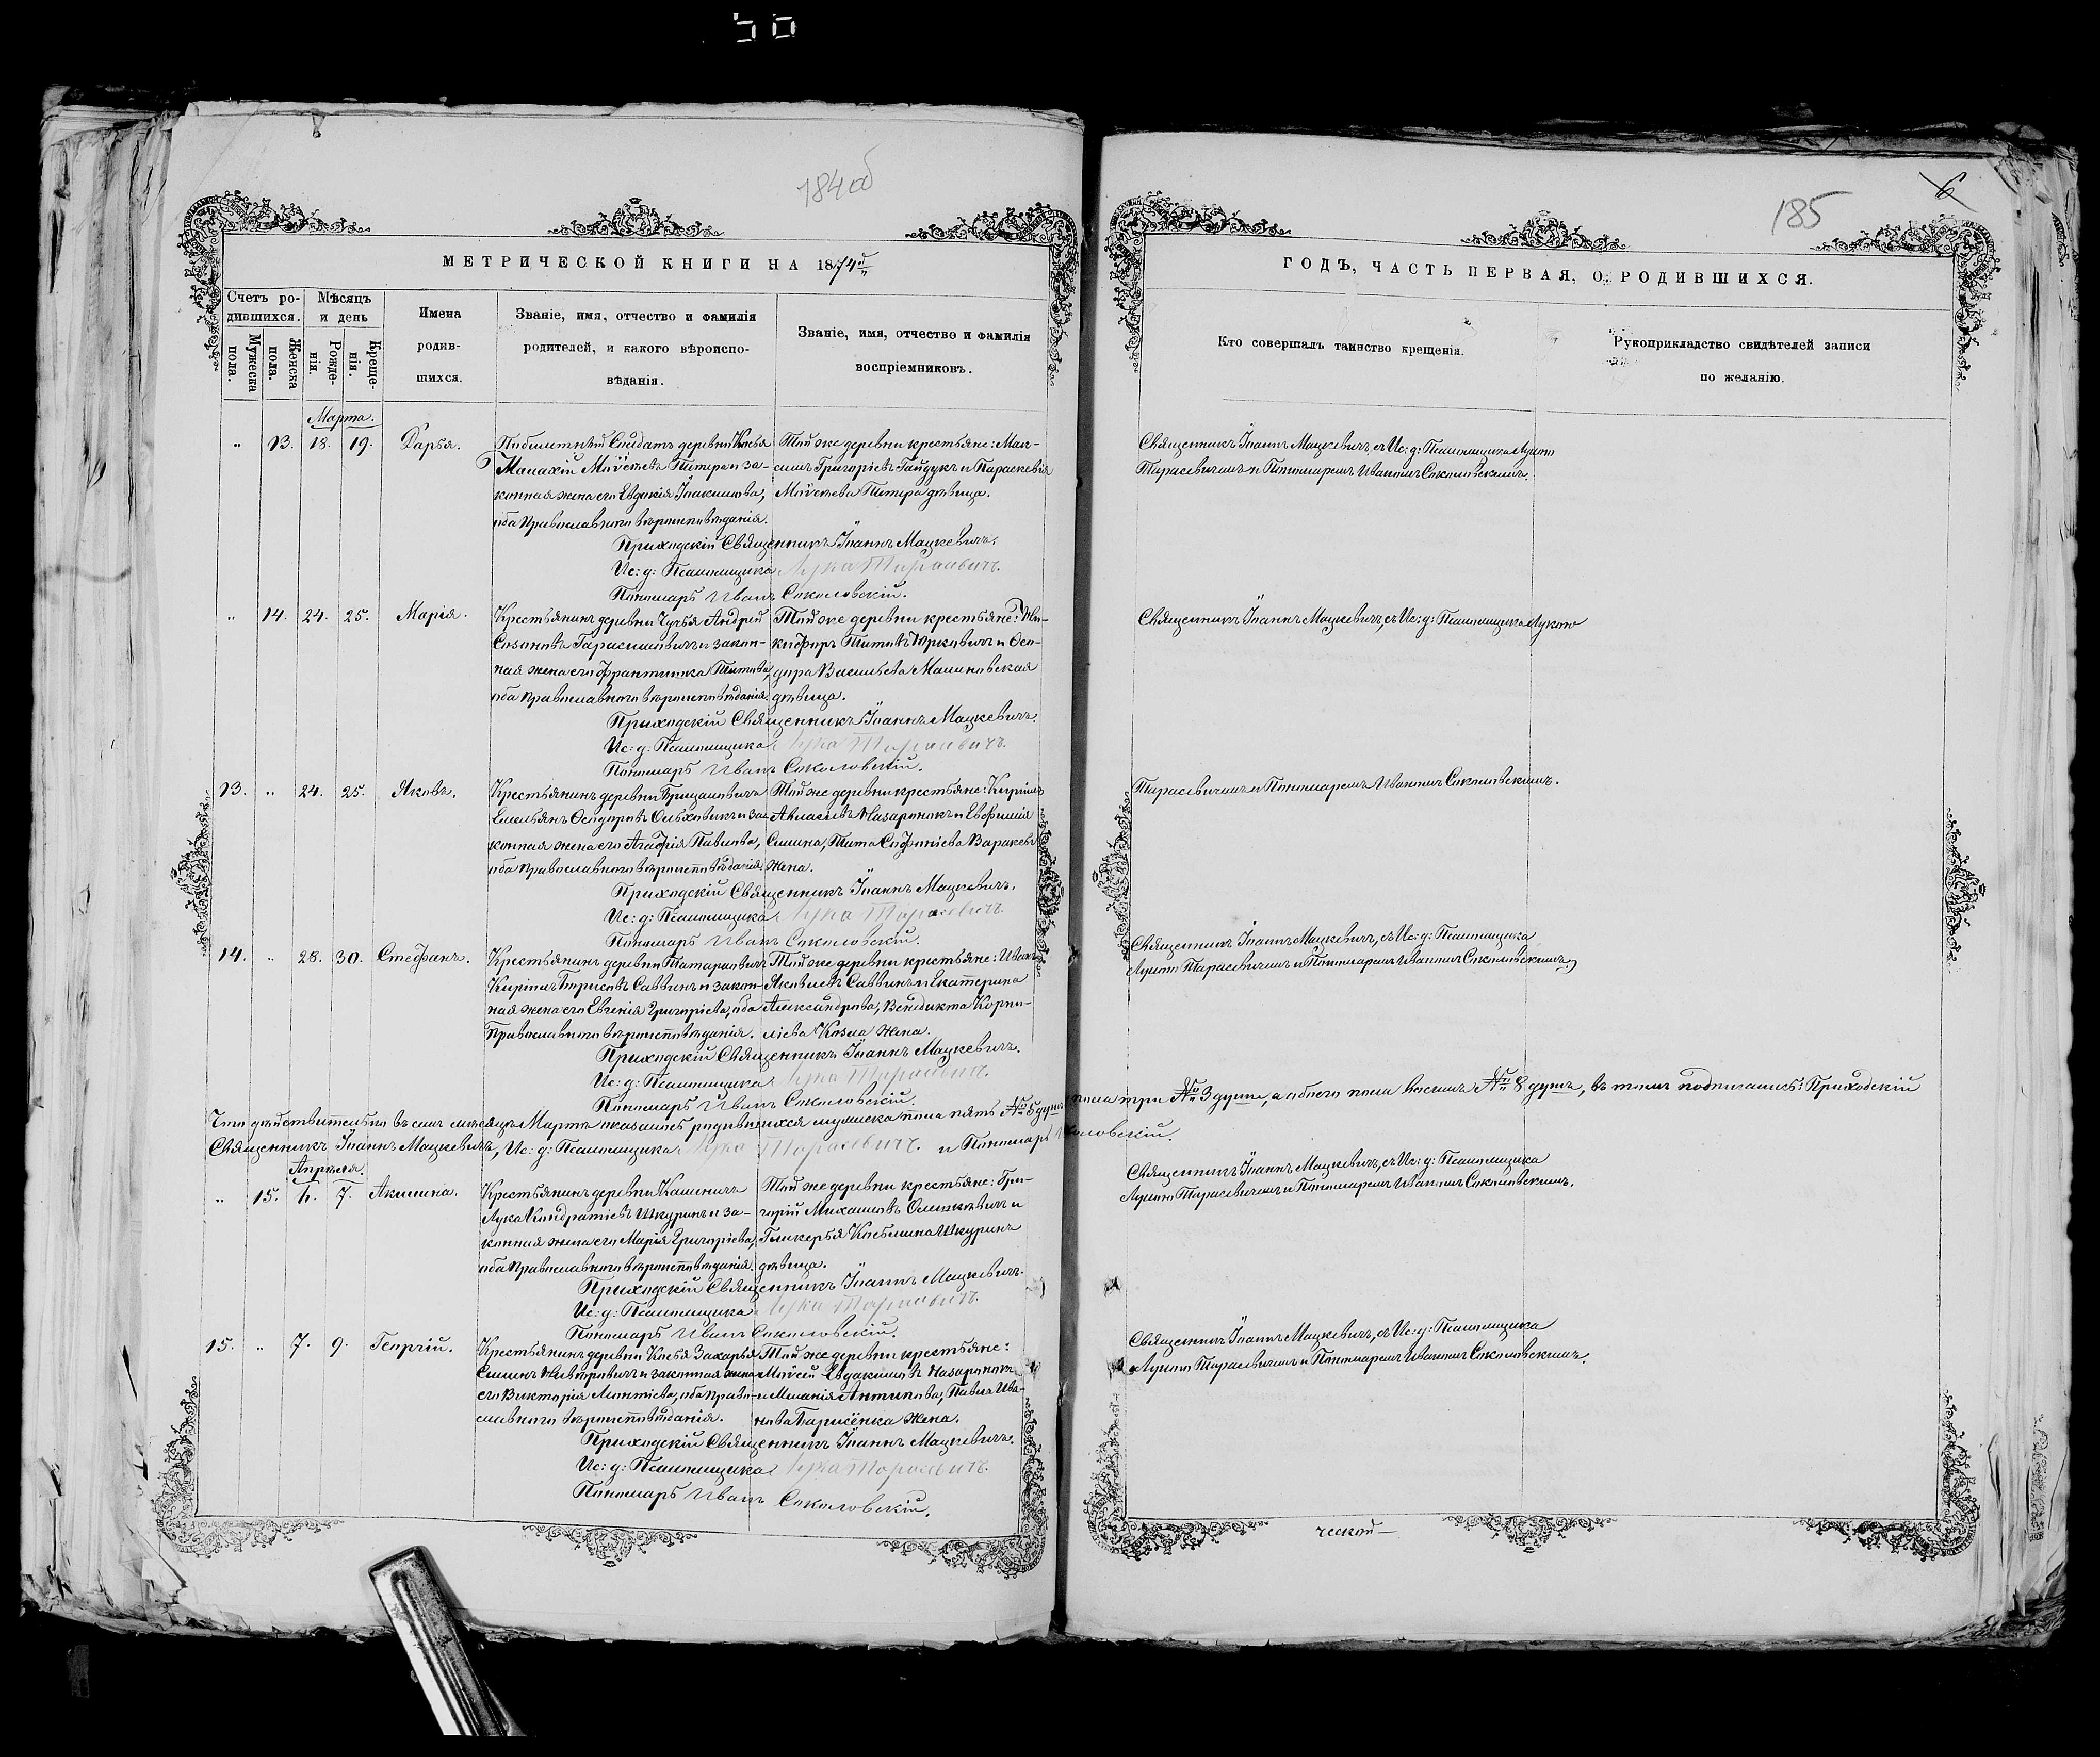 50
184 об
МЕТРИЧЕСКОЙ КНИГИ НА 1874й
Счетъ ро-
дившихся.
Мужеска
пола.
Женска
пола.
Мѣсяцъ
и день
Рожде-
нія.
Креще-
нія.
Имена
родив-
шихся.
Званіе, имя, отчество и фамилія
родителей, и какого вѣроиспо-
вѣданія.
Званіе, имя, отчество и фамилія
воспріемниковъ.
Марта.
" 13. 18. 19. Дарья.
Солдатъ деревни
Малахій Моѵсеевъ Питера и за-
конная жена его Евдокія Іоакимова,
оба Православнаго вѣроисповѣданія.
Той же деревни крестьяне: Мак-
симъ Григоріевъ Гайдукъ и Параскевія
Моѵсеева Питера дѣвица.
Приходскій Священникъ Іоаннъ Мацкевичъ.
Ис: д: Псаломщика Лука Тарасевичъ.
Пономарь Иванъ Соколовскій.
" 14. 24. 25. Марія.
Крестьянинъ деревни Андрей
Созоновъ Гарасимовичъ и закон-
ная жена его Франтишка Титова,
оба Православнаго вѣроисповѣданія
Той же деревни крестьяне: Ни-
кифоръ Титовъ Юрковичъ и Ѳео-
дора Васильева Малиновская
дѣвица.
Приходскій Священникъ Іоаннъ Мацкевичъ.
Ис: д: Псаломщика Лука Тарасевичъ.
Пономарь Иванъ Соколовскій.
13. " 24. 25. Яковъ.
Крестьянинъ деревни Грицаловичъ
Емельянъ Ѳеодоровъ Ольховикъ и за-
конная жена его Агафія Павлова,
оба Православнаго вѣроисповѣданія
Той же деревни крестьяне: Кириллъ
Назаронокъ и Евфимія
Семина, Тита Софроніева
жена.
Приходскій Священникъ Іоаннъ Мацкевичъ.
Ис: д: Псаломщика Лука Тарасевичъ.
Пономарь Иванъ Соколовскій.
14. " 28. 30. Стефанъ.
Крестьянинъ деревни Татарновичъ
Кириллъ Борисовъ Саввинъ и закон-
ная жена его Евгенія Григоріева, оба
Православнаго вѣроисповѣданія.
Той же деревни крестьяне: Иванъ
Яковлевъ Саввинъ и Екатерина
Александрова, Венедикта Корни-
ліева Козла жена.
Приходскій Священникъ Іоаннъ Мацкевичъ.
Ис: д: Псаломщика Лука Тарасевичъ.
Пономарь Иванъ Соколовскій.
Что дѣйствительно въ семъ мѣсяцѣ Мартѣ оказалось родившихся мужеска пола пять № 5 душъ пола три № 3 души, а обоего пола восемь № 8 душъ, въ томъ подписались: Приходскій
Священникъ Іоаннъ Мацкевичъ, Ис: д: Псаломщика Лука Тарасевичъ. и Пономарь
Апрѣля.
" 15. 6. 7. Акилина.
Крестьянинъ деревни Каменичъ
Лука Кондратіевъ Шкуринъ и за-
конная жена его Марія Григоріева,
оба Православнаго вѣроисповѣданія.
Той же деревни крестьяне: Гри-
горій Михаиловъ и
Гликерья Шкуринъ
дѣвица.
Приходскій Священникъ Іоаннъ Мацкевичъ.
Ис: д: Псаломщика Лука Тарасевичъ.
Пономарь Иванъ Соколовскій.
15. " 7. 9. Георгій.
Крестьянинъ деревни Захарья
Семинъ и законная жена
его Викторія Леонтіева, оба Право-
славнаго вѣроисповѣданія.
Той же деревни крестьяне:
Моѵсей Евдокимовъ Назаронокъ
и Меланія Антипова, Павла Ива-
нова Барисёнка жена.
Приходскій Священникъ Іоаннъ Мацкевичъ.
Ис: д: Псаломщика Лука Тарасевичъ.
Пономарь Иванъ Соколовскій.
185
6
ГОДЪ, ЧАСТЬ ПЕРВАЯ, О РОДИВШИХСЯ.
Кто совершалъ таинство крещенія.
Рукоприкладство свидѣтелей записи
по желанію.
Священникъ Іоаннъ Мацкевичъ, съ Ис: д: Псаломщика Лукою
Тарасевичемъ и Пономаремъ Иваномъ Соколовскимъ.
Священникъ Іоаннъ Мацкевичъ, съ Ис: д: Псаломщика Лукою
Тарасевичемъ и Пономаремъ Иваномъ Соколовскимъ.
Священникъ Іоаннъ Мацкевичъ, съ Ис: д: Псаломщика
Лукою Тарасевичемъ и Пономаремъ Иваномъ Соколовскимъ.
Священникъ Іоаннъ Мацкевичъ, съ Ис: д: Псаломщика
Лукою Тарасевичемъ и Пономаремъ Иваномъ Соколовскимъ.
Священникъ Іоаннъ Мацкевичъ, съ Ис: д: Псаломщика
Лукою Тарасевичемъ и Пономаремъ Иваномъ Соколовскимъ.
ческой